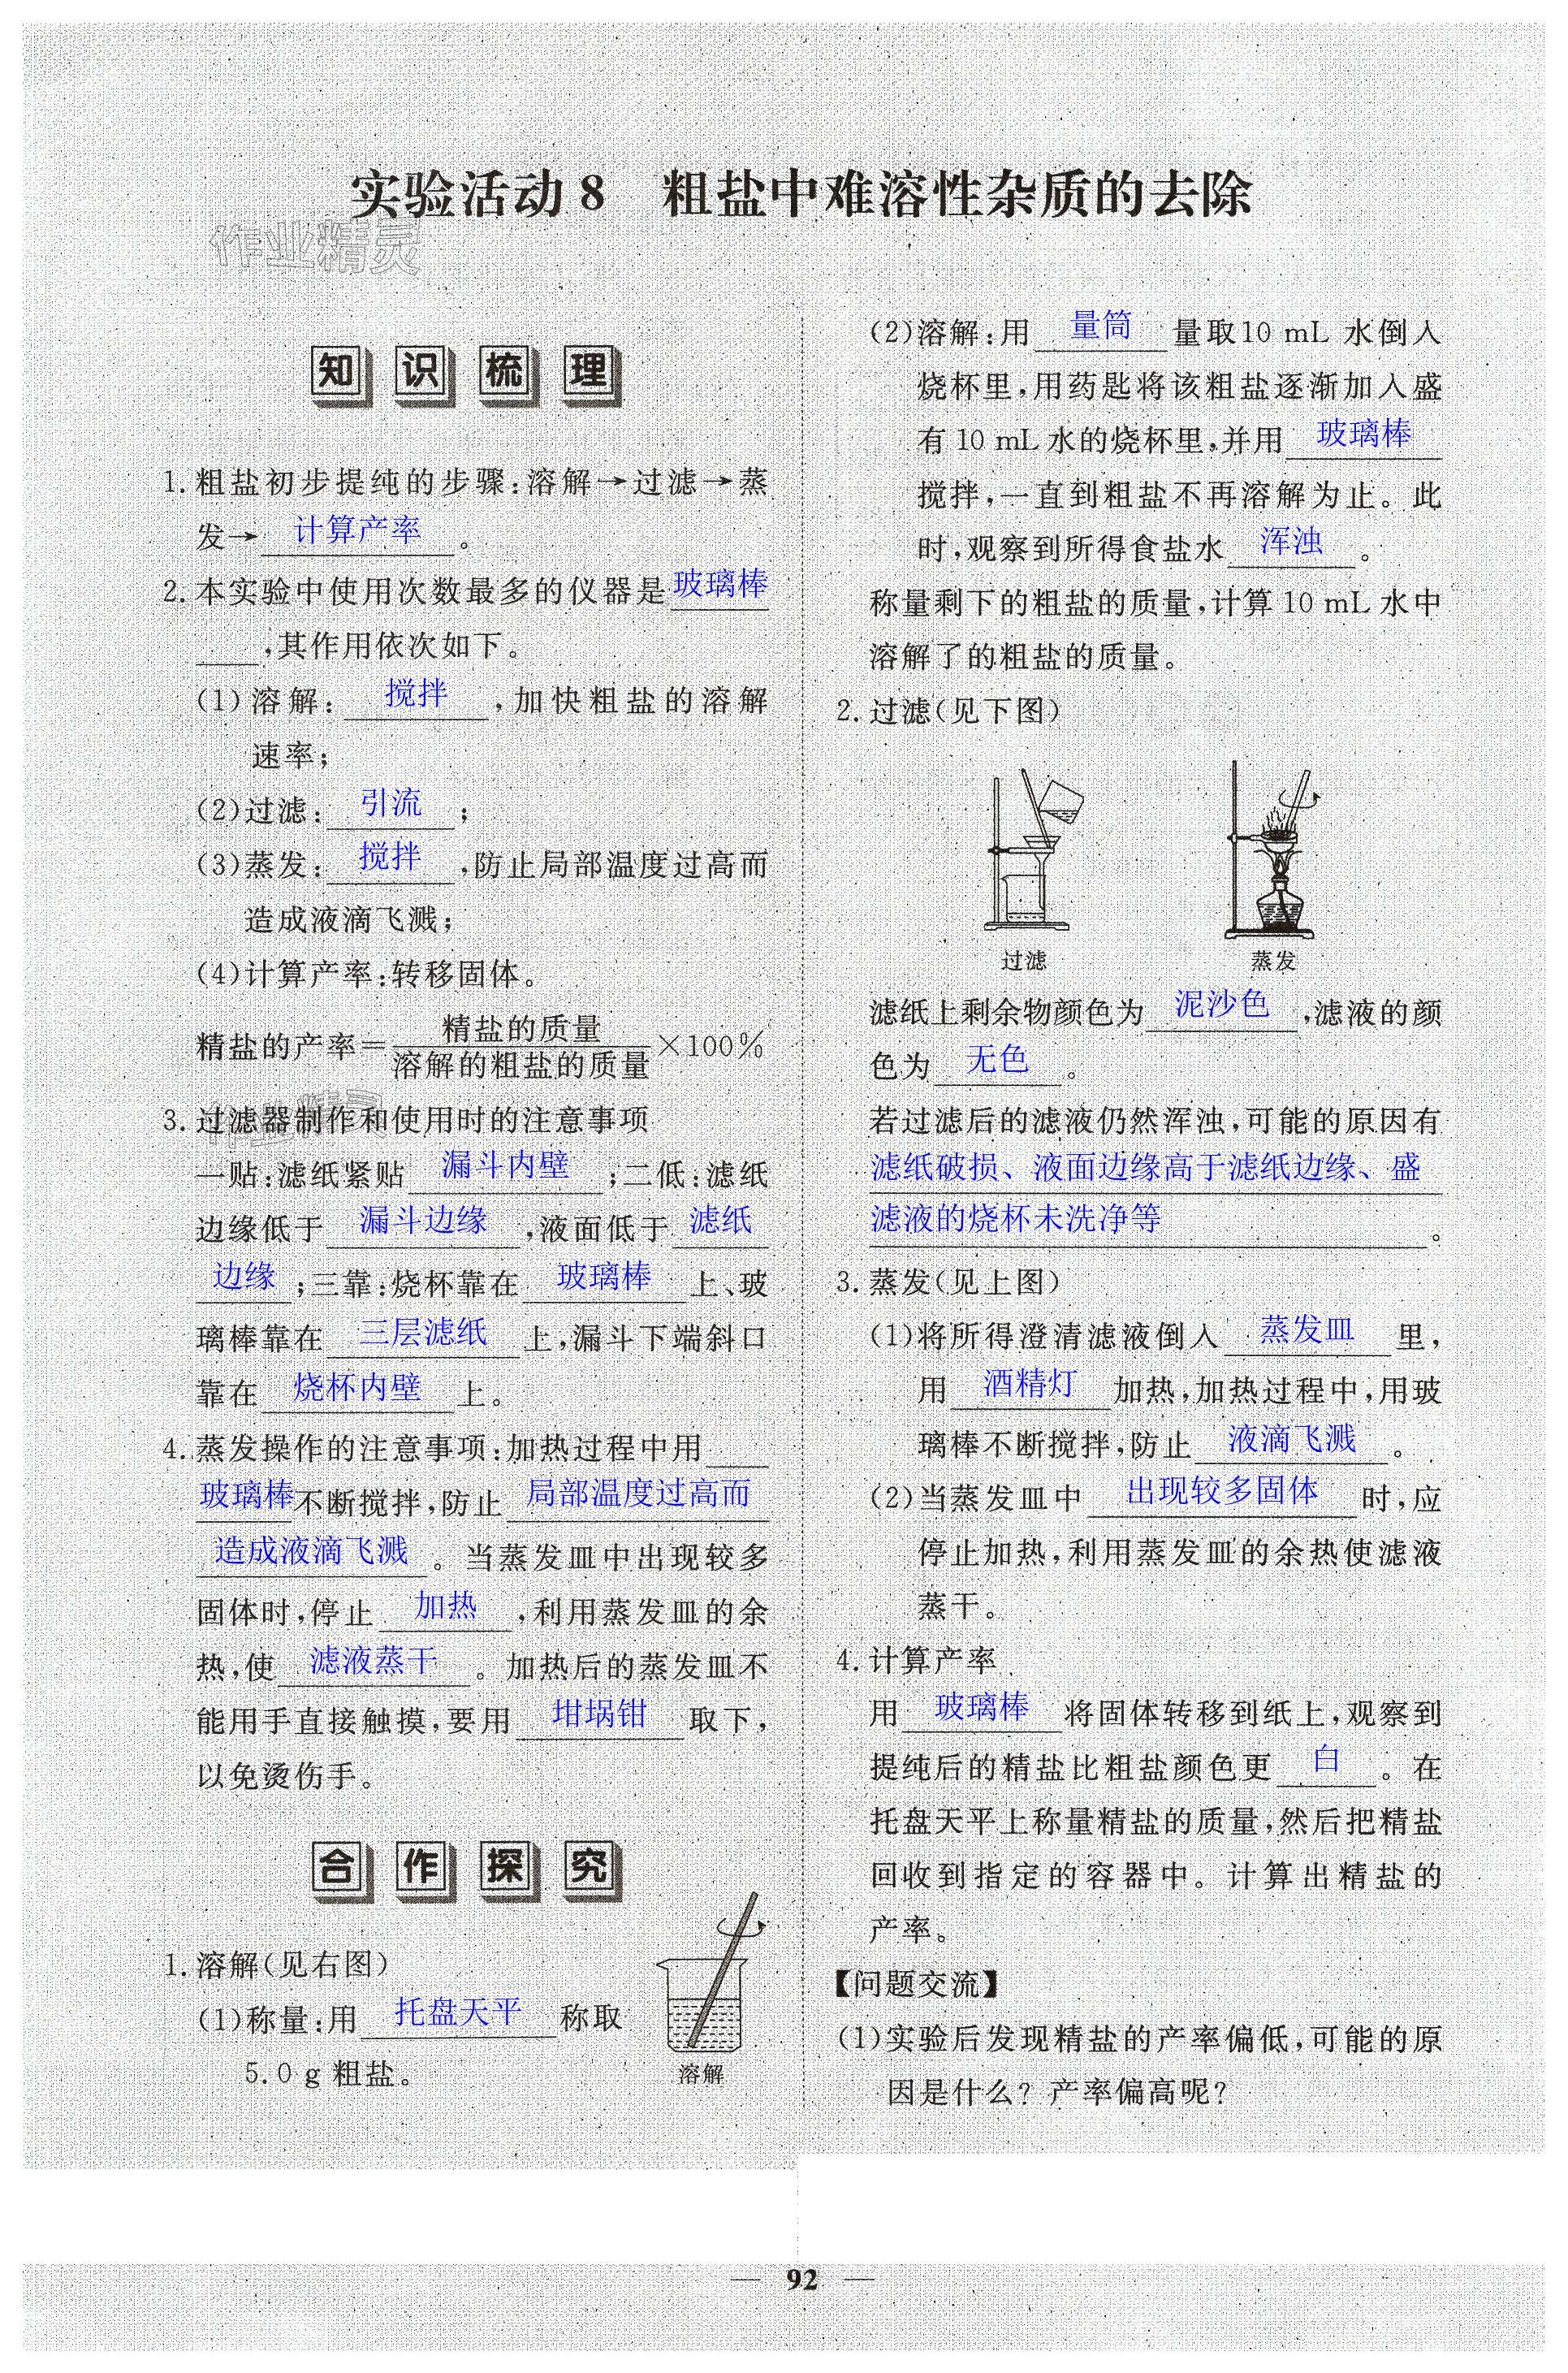 实验活动8 粗盐中难溶性杂质的去除
作业精灵
知识梳理
1. 粗盐初步提纯的步骤:溶解→过滤→蒸
发→计算产率。
2. 本实验中使用次数最多的仪器是玻璃棒
,其作用依次如下。
(1)溶解:搅拌,加快粗盐的溶解
速率;
(2)过滤:引流;
(3)蒸发:搅拌,防止局部温度过高而
造成液滴飞溅;
(4)计算产率:转移固体。
精盐的产率=精盐的质量/溶解的粗盐的质量×100%
作业精灵
3. 过滤器制作和使用时的注意事项
一贴:滤纸紧贴漏斗内壁;二低:滤纸
边缘低于漏斗边缘,液面低于滤纸
边缘;三靠:烧杯靠在玻璃棒上、玻
璃棒靠在三层滤纸上,漏斗下端斜口
靠在烧杯内壁上。
4. 蒸发操作的注意事项:加热过程中用
玻璃棒不断搅拌,防止局部温度过高而
造成液滴飞溅。当蒸发皿中出现较多
固体时,停止加热,利用蒸发皿的余
热,使滤液蒸干。加热后的蒸发皿不
能用手直接触摸,要用坩埚钳取下,
以免烫伤手。
合作探究
1. 溶解(见右图)
(1)称量:用托盘天平称取
5.0 g 粗盐。
溶解
(2)溶解:用量筒量取10 mL 水倒入
烧杯里,用药匙将该粗盐逐渐加入盛
有10 mL水的烧杯里,并用玻璃棒
搅拌,一直到粗盐不再溶解为止。此
时,观察到所得食盐水浑浊。
称量剩下的粗盐的质量,计算10 mL水中
溶解了的粗盐的质量。
2. 过滤(见下图)
过滤 蒸发
滤纸上剩余物颜色为泥沙色,滤液的颜
色为无色。
若过滤后的滤液仍然浑浊,可能的原因有
滤纸破损、液面边缘高于滤纸边缘、盛
滤液的烧杯未洗净等。
3. 蒸发(见上图)
(1)将所得澄清滤液倒入蒸发皿里,
用酒精灯加热,加热过程中,用玻
璃棒不断搅拌,防止液滴飞溅。
(2)当蒸发皿中出现较多固体时,应
停止加热,利用蒸发皿的余热使滤液
蒸干。
4. 计算产率
用玻璃棒将固体转移到纸上,观察到
提纯后的精盐比粗盐颜色更白。在
托盘天平上称量精盐的质量,然后把精盐
回收到指定的容器中。计算出精盐的
产率。
【问题交流】
(1)实验后发现精盐的产率偏低,可能的原
因是什么?产率偏高呢?
— 92 —